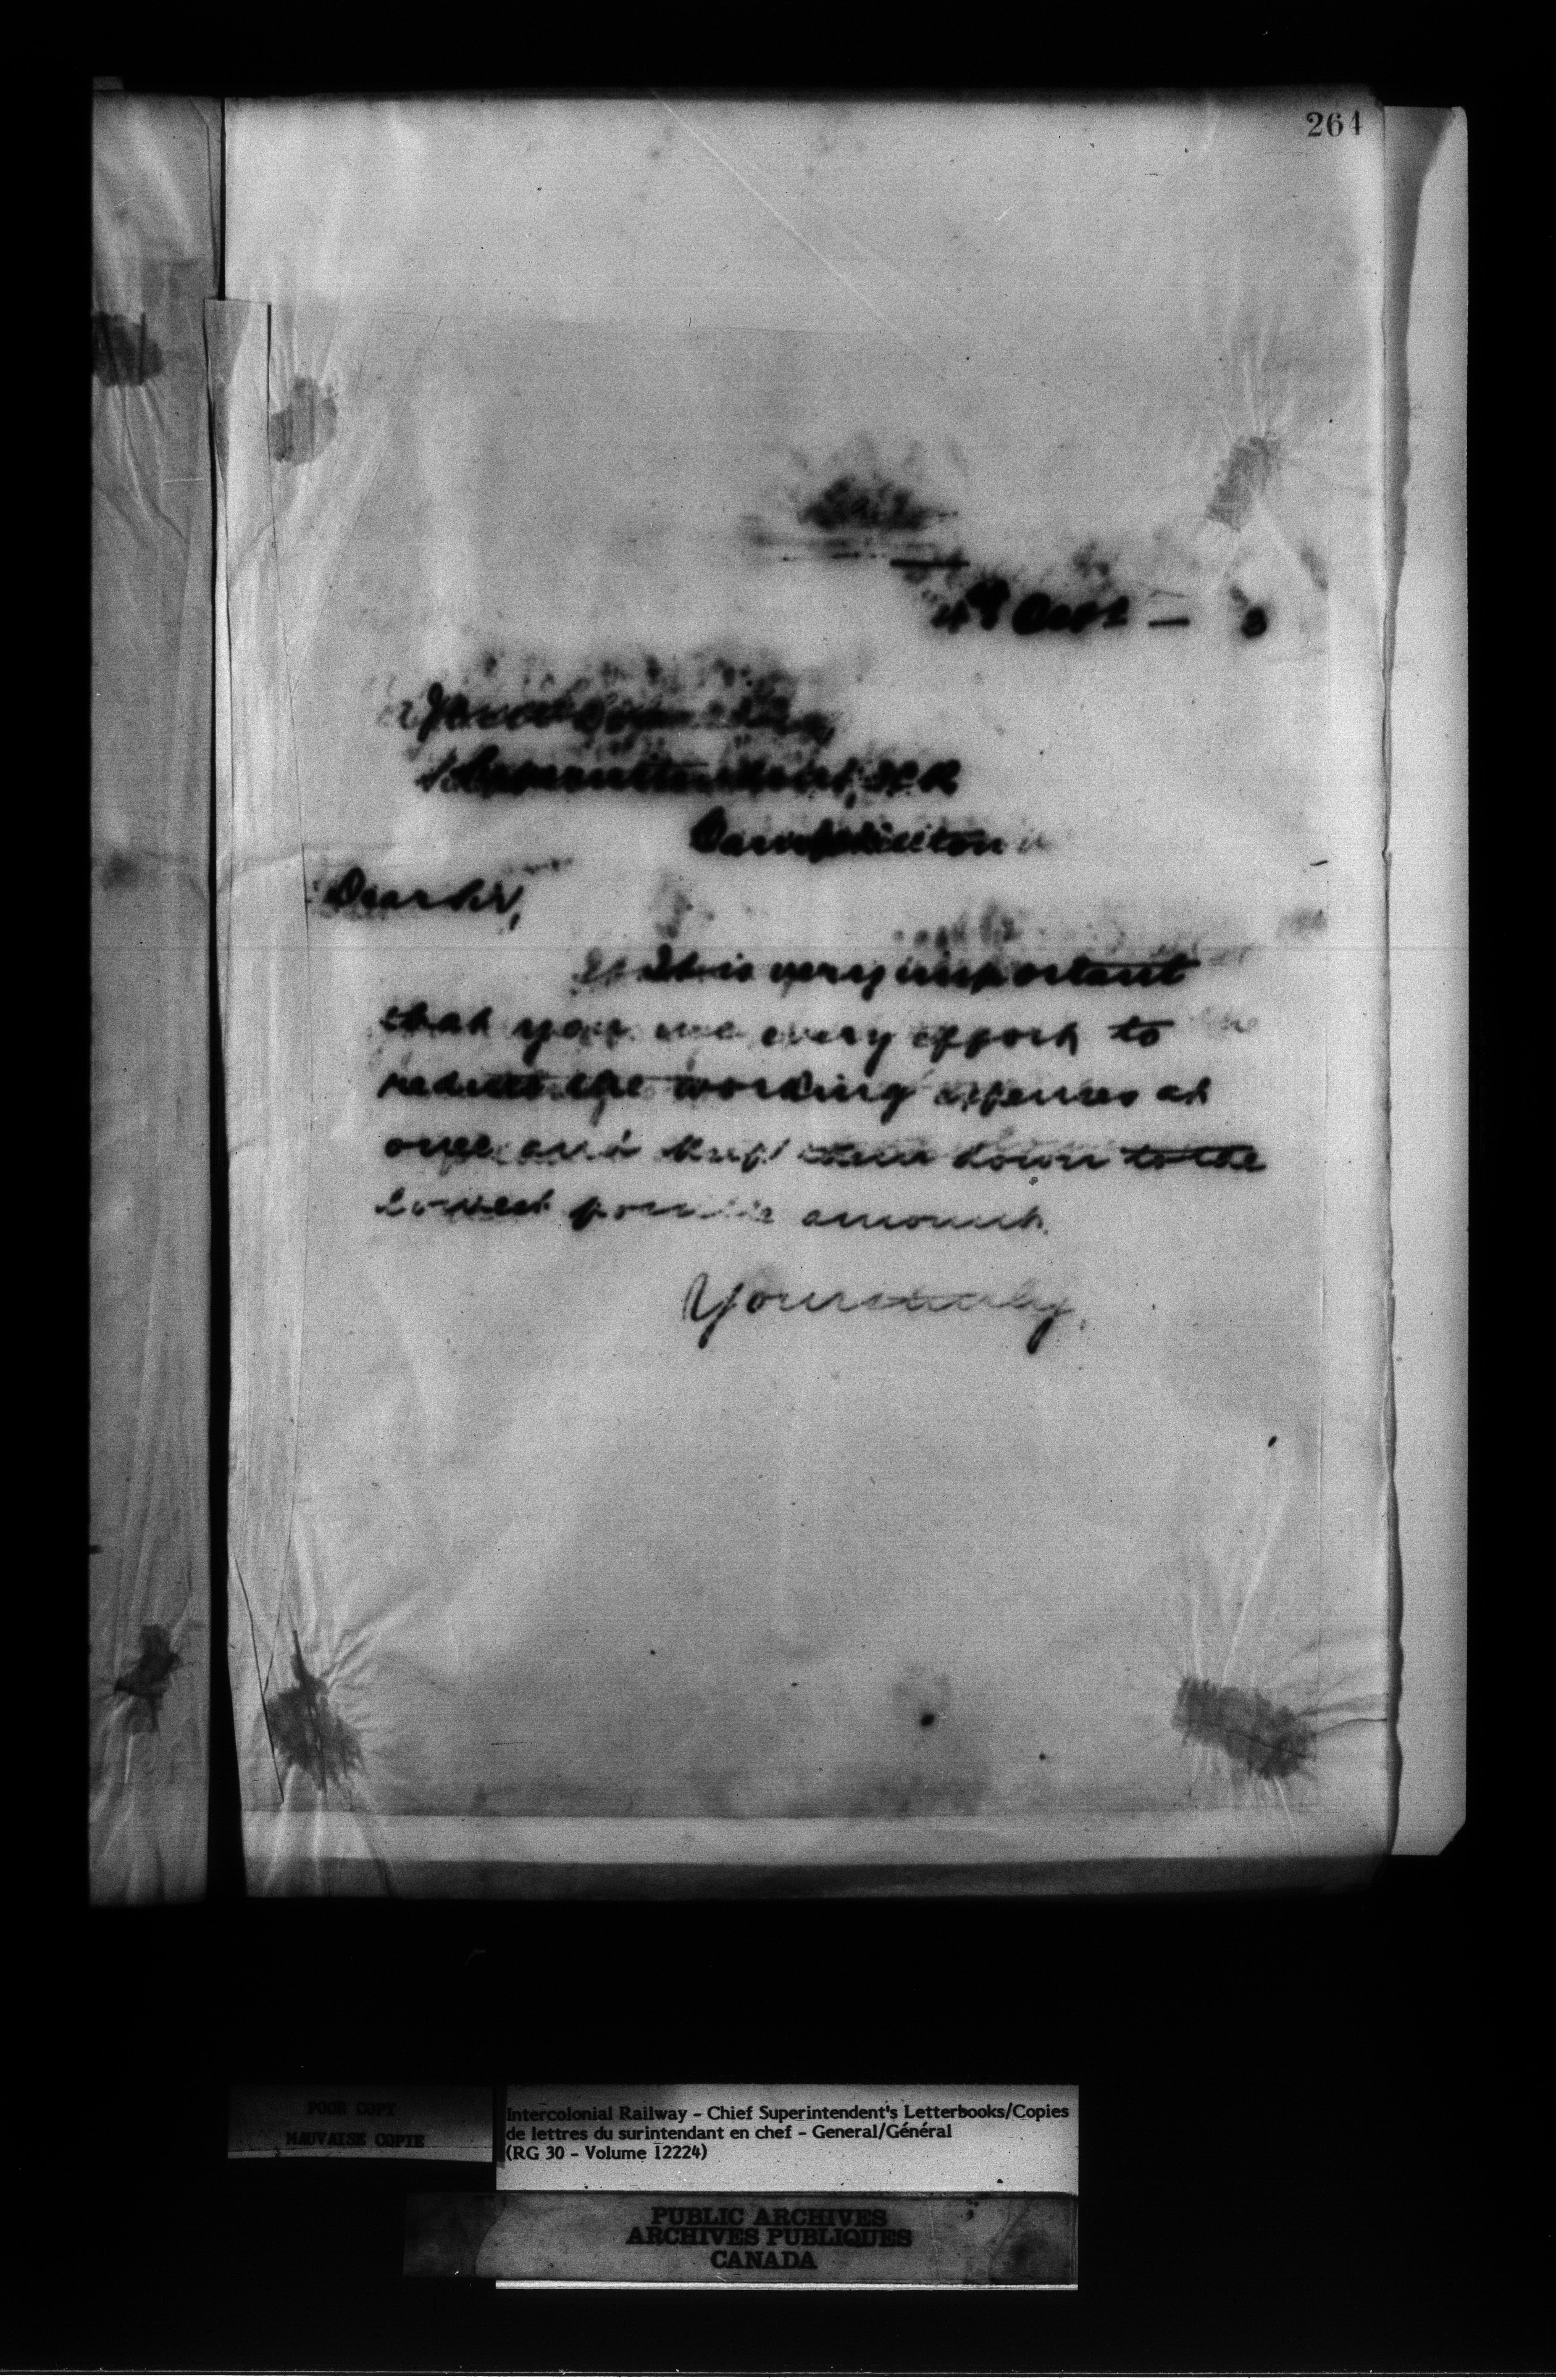 264
4th Octr — 3
Superintendent, I.C.R.
Campbellton
Dear Sir,
It is very important
that you use every effort to
reduce the working expenses at
once and keep them down to the
lowest possible amount.
Yours truly,
POOR COPY
MAUVAISE COPIE
Intercolonial Railway - Chief Superintendent's Letterbooks/Copies
de lettres du surintendant en chef - General/Général
(RG 30 - Volume 12224)
PUBLIC ARCHIVES
ARCHIVES PUBLIQUES
CANADA